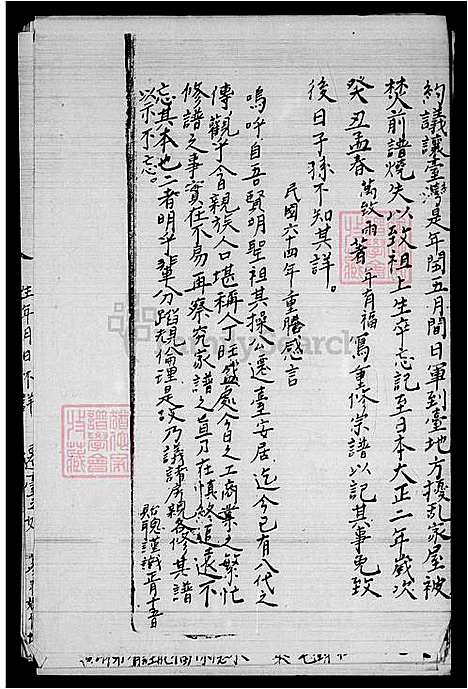 約議讓臺灣是年閏五月間日軍到臺地方擾乱家屋被
焚前譜燒失以致祖上生卒忘記至日本大正二年歲次
癸丑孟春 著年有福寫重修崇譜以記其事免致
後日子孫不知其詳。
民國六十四年重謄感言
嗚呼自吾賢明聖祖其操公遷臺安居迄今已有八代之
傳觀乎今日親族人口堪稱人丁旺盛處今日之工商業之繁忙
修譜之事實在不易再察究家譜之旨乃在慎終追遠不
忘其本也二者明乎輩分蹈規倫理是故乃議諸房親各修其譜
以示不忘。
生年月日不詳
FamilySearch